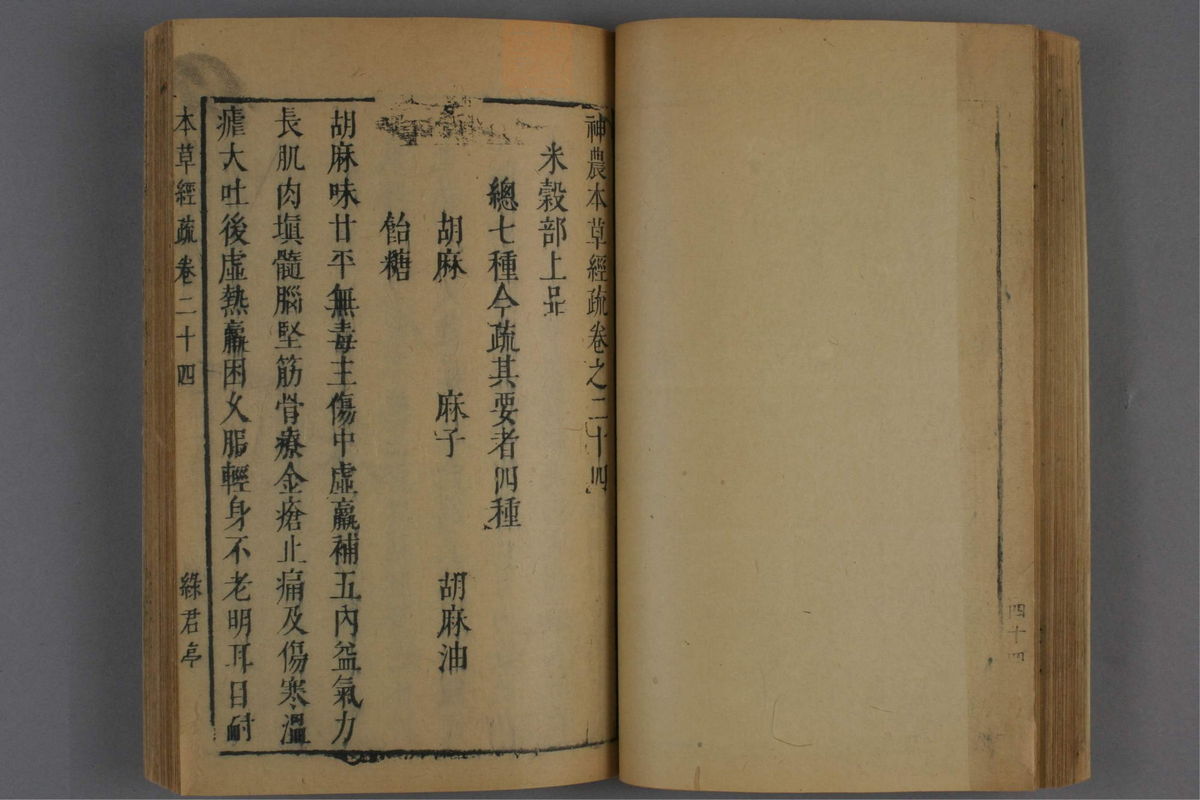 四十四
神農本草經疏卷之二十四
米穀部上品
總七種今疏其要者四種
胡麻 麻子 胡麻油
飴糖
胡麻味甘平無毒主傷中虛羸補五內益氣力
長肌肉塡髓腦堅筋骨療金瘡止痛及傷寒溫
瘧大吐後虛熱羸困久服輕身不老明耳目耐
本草經疏卷二十四 綠君亭